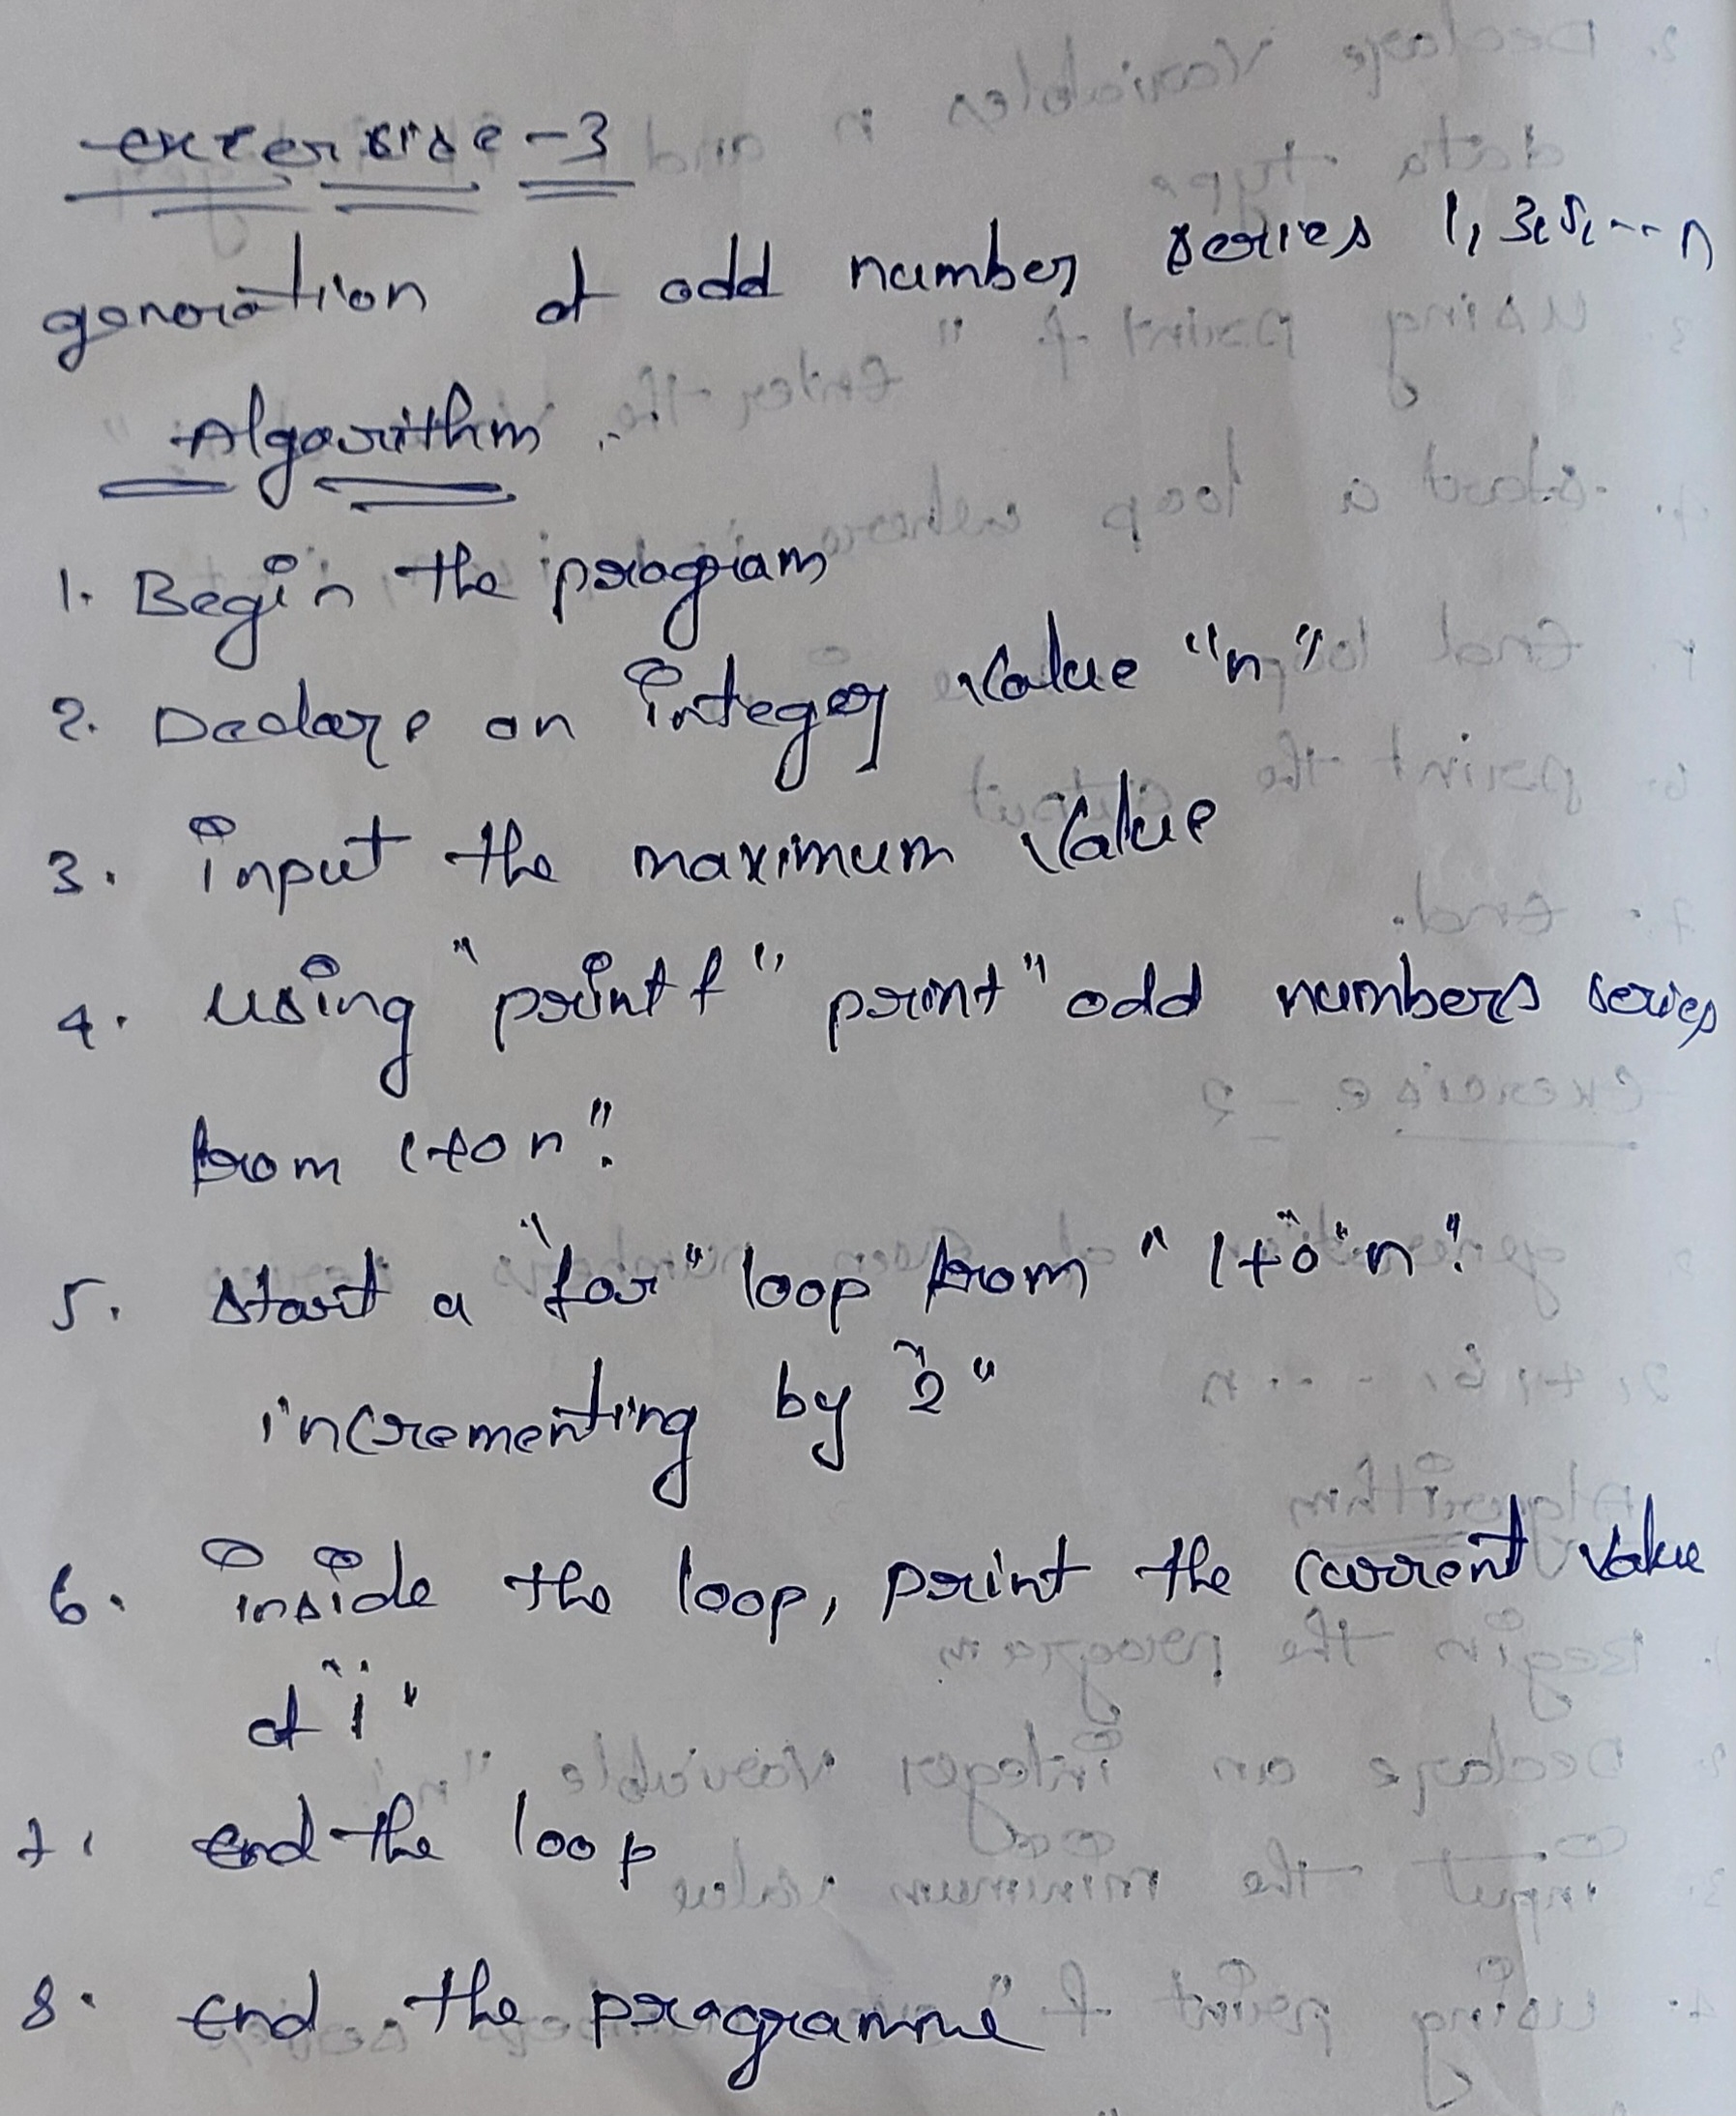 exercise - 3
generation of odd number series 1, 3, 5, --- n
Algorithm :-
1. Begin the program
2. Declare an integer value "n"
3. input the maximum value
4. using "printf" print "odd numbers series
from 1 to n".
5. start a "for" loop from "1 to" "n".
incrementing by "2"
6. inside the loop, print the current value
of "i"
7. end the loop
8. End the programme